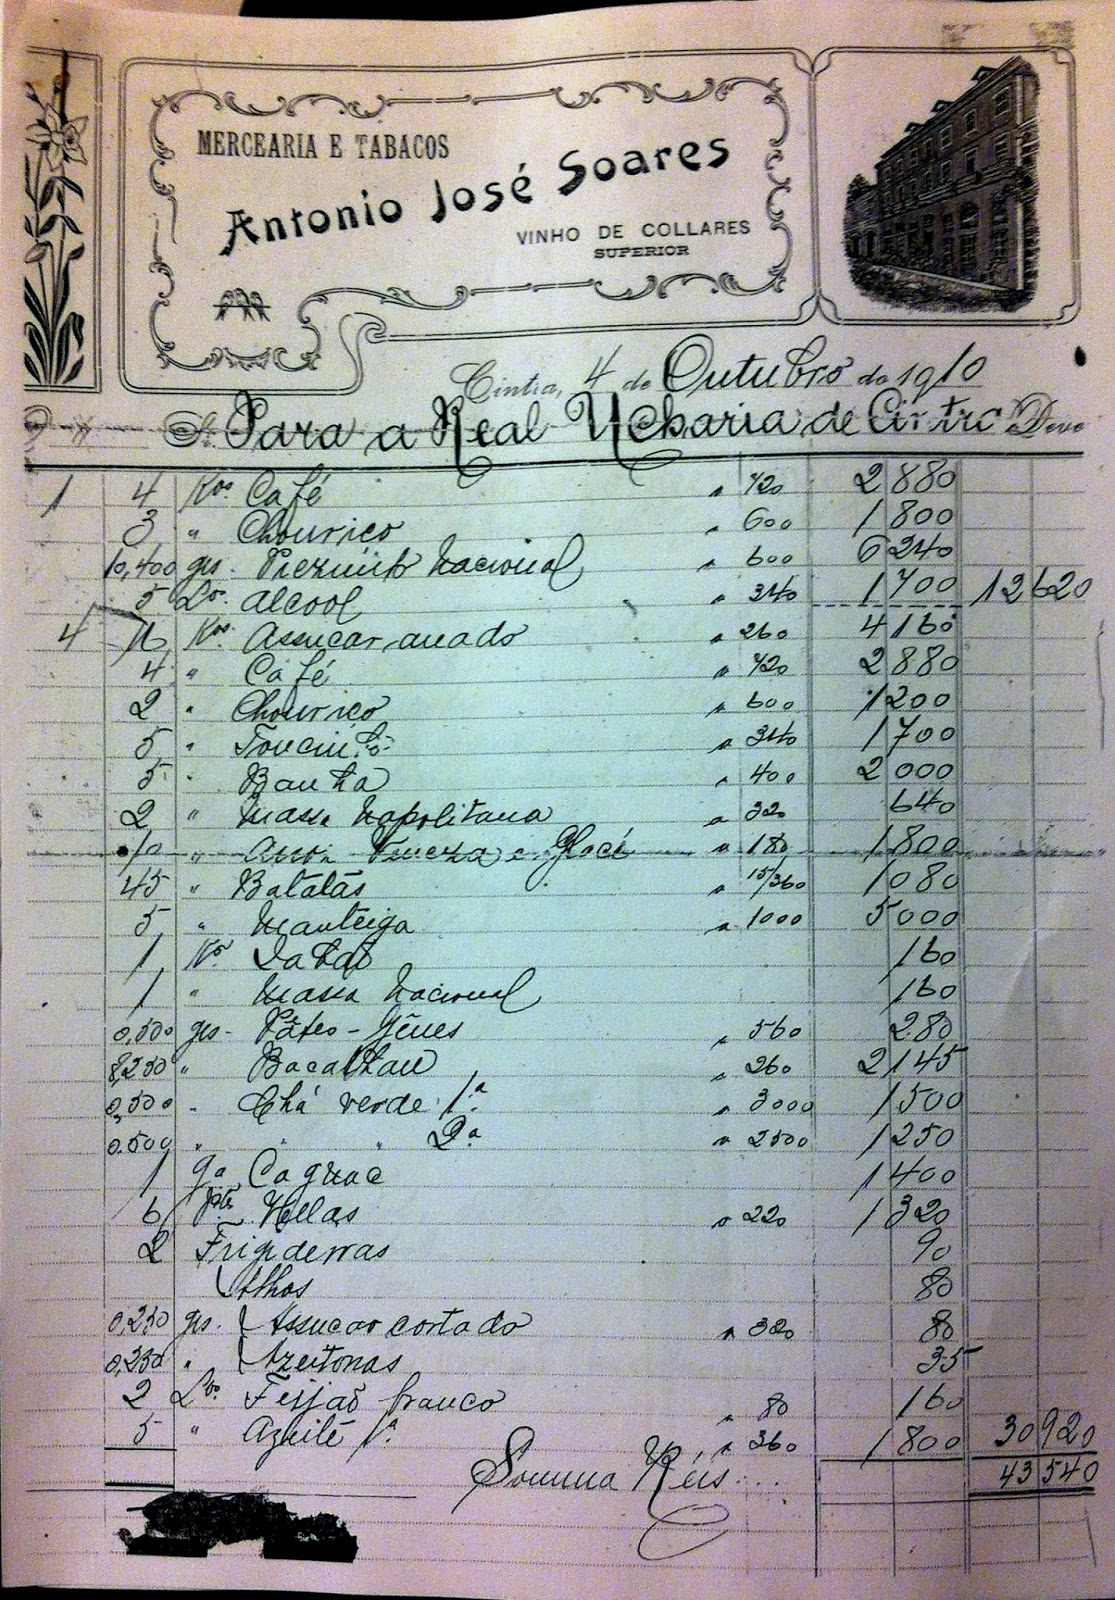 MERCEARIA E TABACOS
Antonio José Soares
VINHO DE COLLARES
SUPERIOR
Cintra, 4 de Outubro de 1910
Para a Real Ucharia de Cintra Deve
1 4 Kos Café a 720 2 880
3 " Chouriço " 600 1 800
10,400 grs. Prezunto Nacional " 600 6 240
5 Los. Alcool " 340 1 700 12 620
4 16 Kos Assucar areado " 260 4 160
4 " Café " 720 2 880
2 " Chouriço " 600 1 200
5 " Toucinho " 340 1 700
5 " Banha " 400 2 000
2 " Massa Napolitana " 320 640
10 " Arroz Veneza e Glacé " 180 1 800
45 " Batatas " 15/360 1 080
5 " Manteiga " 1000 5 000
1 Ko 160
1 " Massa Nacional 160
0,500 grs - " 560 280
8,250 " Bacalhau " 260 2 145
0,500 " Chá verde 1ª " 3000 1 500
0,500 " " " 2ª " 2500 1 250
1 ga Cognac 1 400
6 Ptes Vellas " 220 1 320
2 Frigideiras 90
Alhos 80
0,250 grs. Assucar cortado " 320 80
0,250 " Azeitonas 35
2 Los. Feijão branco " 80 160
5 " Azeite 1ª " 360 1 800 30 920
Somma Réis... 43 540